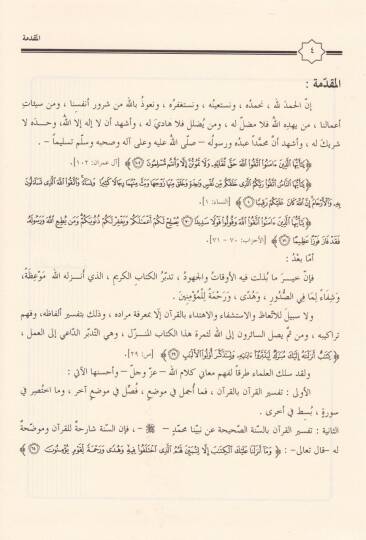 المقدمة
٤
المقدّمة :
إنّ الحمدَ لله ، نحمدُه ، ونستعينُه ، ونستغفرُه ، ونعوذُ بالله من شرور أنفسِنا ، ومن سيئاتِ
أعمالنا ، من يهدِه اللهُ فلا مضلّ له ، ومن يُضلل فلا هاديَ له ، وأشهد أن لا إله إلا اللهُ، وحـدَه لا
شريكَ له ، وأشهد أنّ محمّداً عبدُه ورسولُه – صلّى الله عليه وعلى آله وصحبه وسلّم تسليماً – .
﴿ يَٰٓأَيُّهَا ٱلَّذِينَ ءَامَنُوا۟ ٱتَّقُوا۟ ٱللَّهَ حَقَّ تُقَاتِهِۦ وَلَا تَمُوتُنَّ إِلَّا وَأَنتُم مُّسْلِمُونَ ﴿١٠٢﴾ ﴾ [آل عمران: ١٠٢].
﴿ يَٰٓأَيُّهَا ٱلنَّاسُ ٱتَّقُوا۟ رَبَّكُمُ ٱلَّذِى خَلَقَكُم مِّن نَّفْسٍ وَٰحِدَةٍ وَخَلَقَ مِنْهَا زَوْجَهَا وَبَثَّ مِنْهُمَا رِجَالًا كَثِيرًا وَنِسَآءً ۚ وَٱتَّقُوا۟ ٱللَّهَ ٱلَّذِى تَسَآءَلُونَ
بِهِۦ وَٱلْأَرْحَامَ ۚ إِنَّ ٱللَّهَ كَانَ عَلَيْكُمْ رَقِيبًا ﴿١﴾ ﴾ [النساء: ١].
﴿ يَٰٓأَيُّهَا ٱلَّذِينَ ءَامَنُوا۟ ٱتَّقُوا۟ ٱللَّهَ وَقُولُوا۟ قَوْلًا سَدِيدًا ﴿٧٠﴾ يُصْلِحْ لَكُمْ أَعْمَٰلَكُمْ وَيَغْفِرْ لَكُمْ ذُنُوبَكُمْ ۗ وَمَن يُطِعِ ٱللَّهَ وَرَسُولَهُۥ
فَقَدْ فَازَ فَوْزًا عَظِيمًا ﴿٧١﴾ ﴾ [الأحزاب: ٧٠ – ٧١].
أمّا بعدُ :
فإنّ خيـرَ ما بُذلت فيه الأوقاتُ والجهودُ ، تدبّرُ الكتابِ الكريمِ ، الذي أنـزله اللهُ مَوْعِظَةً،
وَشِفَاءً لِمَا فِي الصُّدُورِ ، وَهُدًى ، وَرَحْمَةً لِلْمُؤْمِنِينَ .
ولا سبيلَ للاتّعاظ والاستشفاء والاهتداء بالقرآن إلّا بمعرفة مراده ، وذلك بتفسير ألفاظه، وفهمِ
تراكيبه ، ومن ثَمّ يصل السائرون إلى الله لثمرة هذا الكتابِ المنـزل ، وهي التّدبّر الدّاعي إلى العمل ،
﴿ كِتَٰبٌ أَنزَلْنَٰهُ إِلَيْكَ مُبَٰرَكٌ لِّيَدَّبَّرُوٓا۟ ءَايَٰتِهِۦ وَلِيَتَذَكَّرَ أُو۟لُوا۟ ٱلْأَلْبَٰبِ ﴿٢٩﴾ ﴾ [ص: ٢٩].
ولقد سلك العلماء طرقاً لفهم معاني كلام الله – عزّ وجلّ – وأحسنها الآتي :
الأولى : تفسير القرآن بالقرآن ، فما أُجمل في موضعٍ ، فُصّل في موضعٍ آخر ، وما اختُصِر في
سورةٍ ، بُسِط في أخرى .
الثانية : تفسير القرآن بالسّنة الصّحيحة عن نبيّنا محمّدٍ – ﷺ – ، فإن السّنة شارحةٌ للقرآن وموضّحةٌ
له –قال تعالى– : ﴿ وَمَآ أَنزَلْنَا عَلَيْكَ ٱلْكِتَٰبَ إِلَّا لِتُبَيِّنَ لَهُمُ ٱلَّذِى ٱخْتَلَفُوا۟ فِيهِ ۙ وَهُدًى وَرَحْمَةً لِّقَوْمٍ يُؤْمِنُونَ ﴿٦٤﴾ ﴾